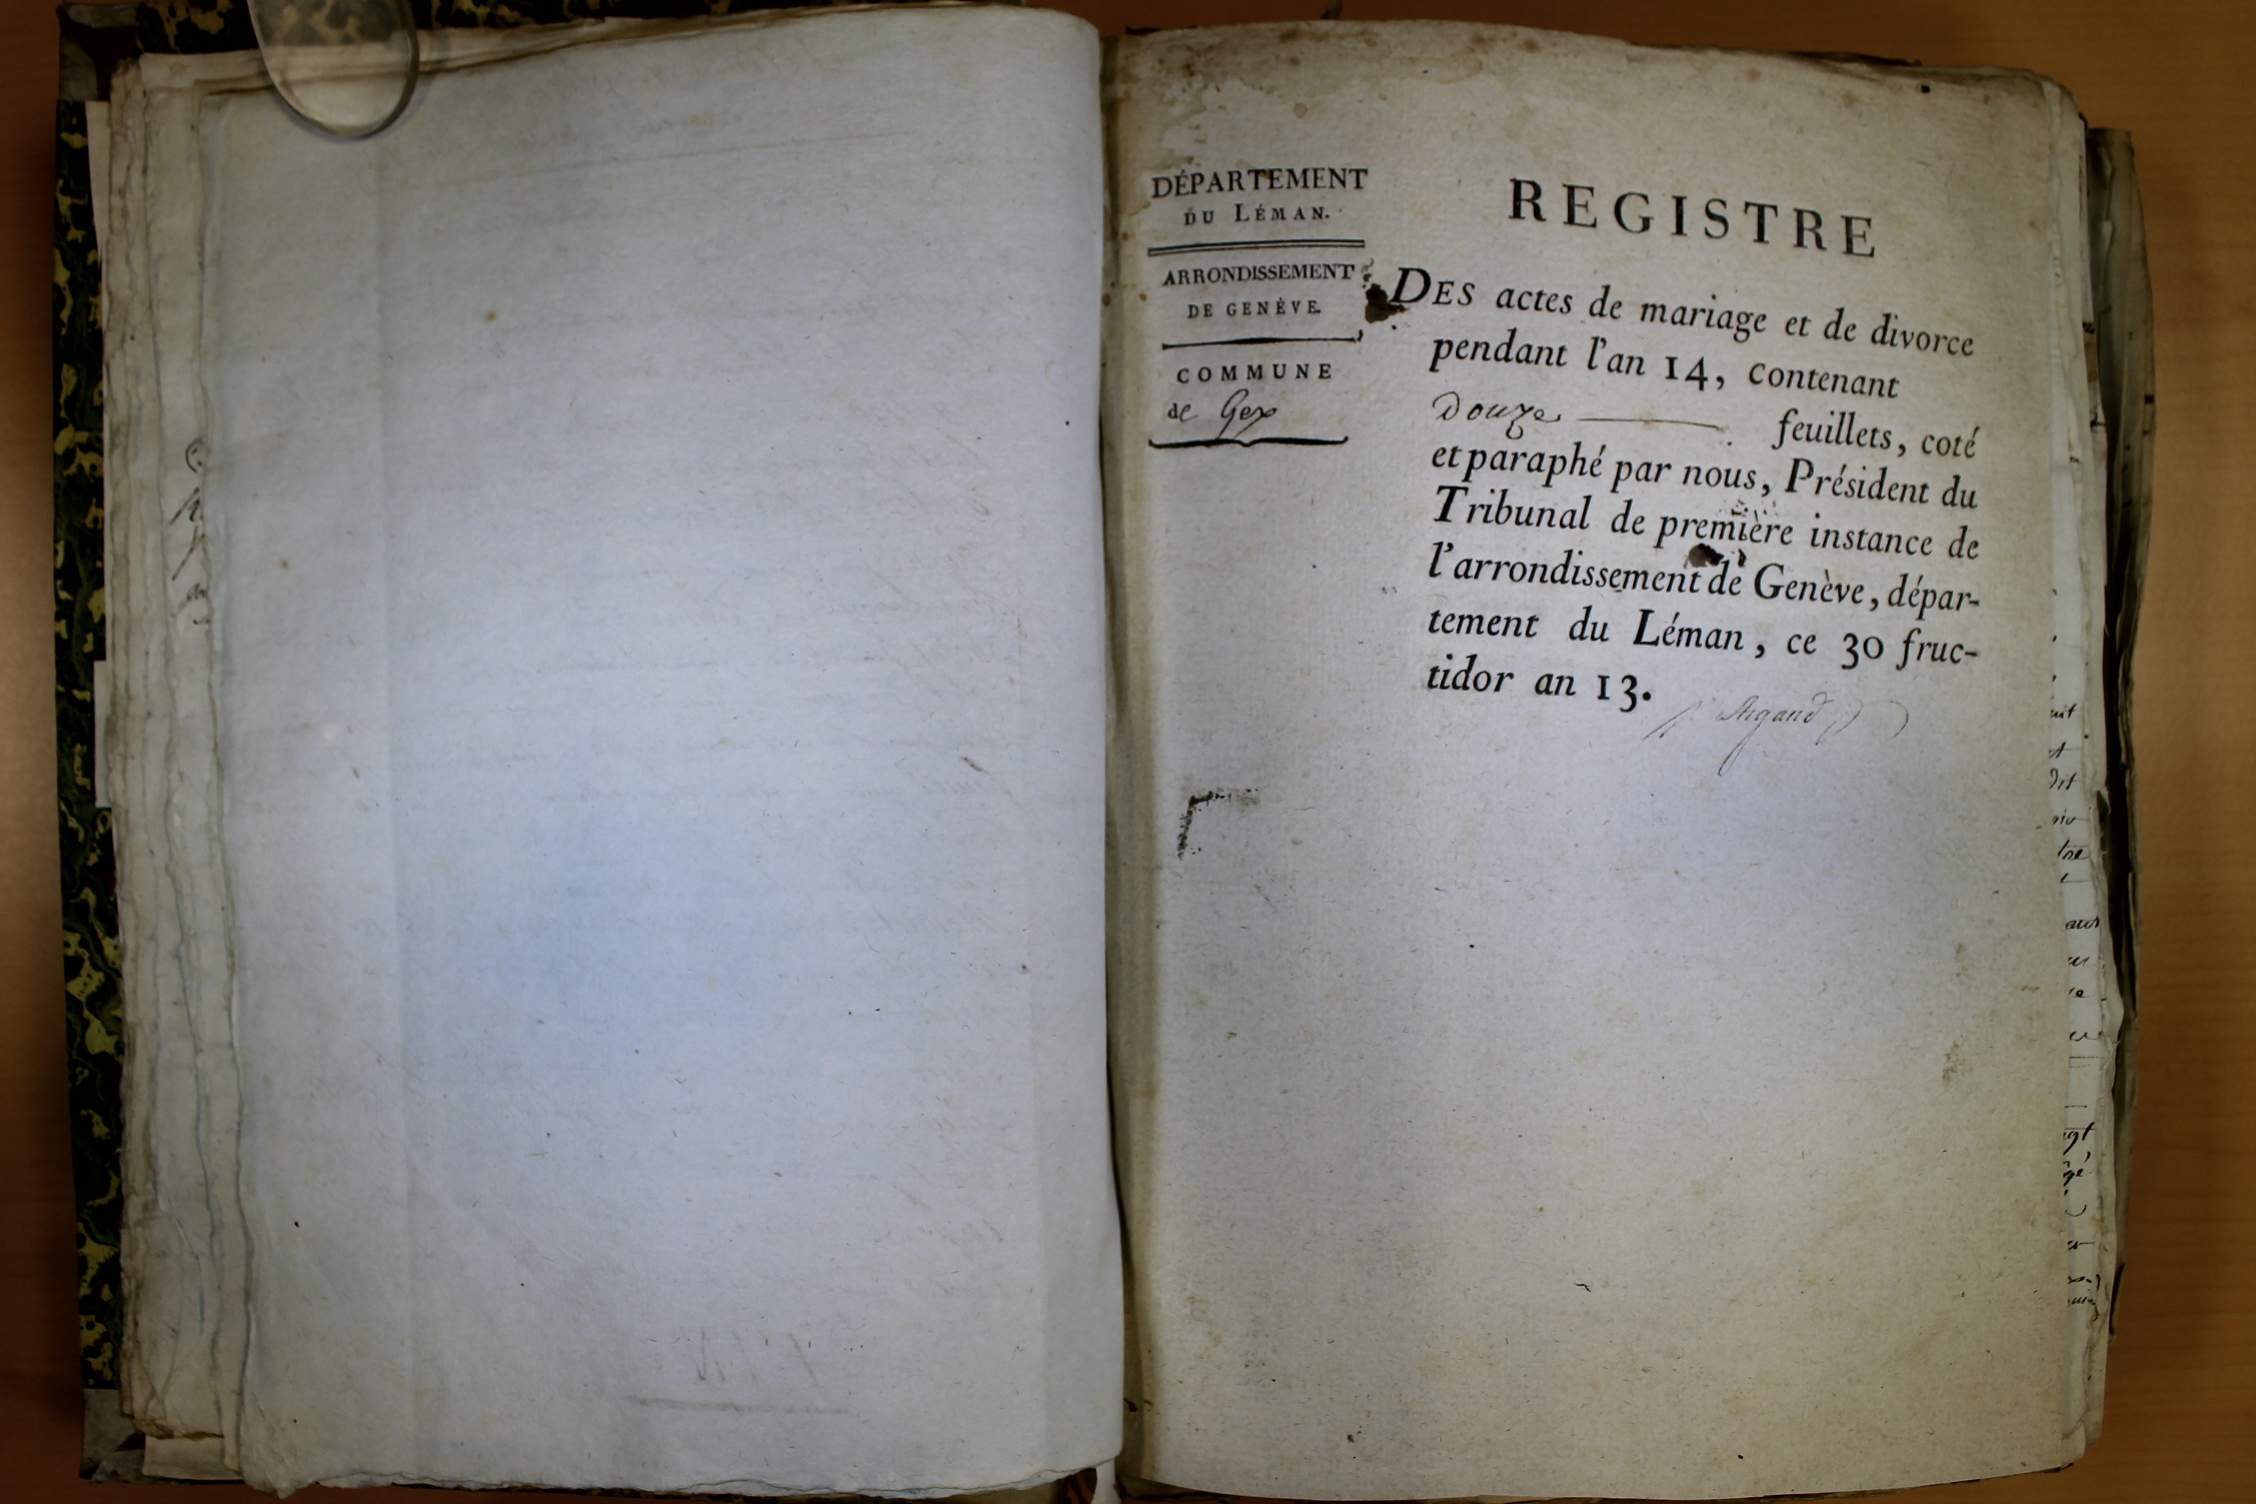 DÉPARTEMENT
DU LÉMAN.
ARRONDISSEMENT
DE GENÈVE.
COMMUNE
de Gex
REGISTRE
DES actes de mariage et de divorce
pendant l'an 14, contenant
Douze feuillets, coté
et paraphé par nous, Président du
Tribunal de première instance de
l'arrondissement de Genève, dépar-
tement du Léman, ce 30 fruc-
tidor an 13.
Argand